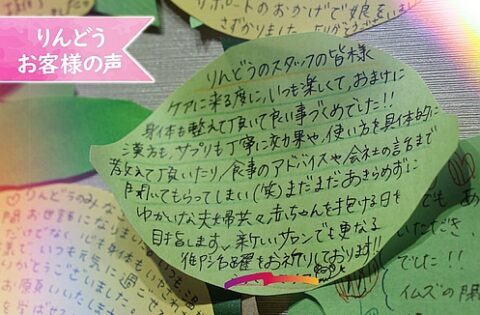 りんどう
お客様の声
サポートのおかげで娘を
さずかりました。
りんどうのスタッフの皆様
ケアに来る度に、いつも楽しくて、おまけに
身体も整えて頂いて良い事づくめでした!!
漢方も、サプリも丁寧に効果や、使い方を具体的に
教えて頂いたり、食事のアドバイスや、会社の言まで
聞いてもらってしまい(笑)まだまだあきらめずに
ゆかいな夫婦共々、赤ちゃんを抱ける日を
目指します。新しいサロンでも更なる
御活躍をお祈りております!!
りんどうのみな
お世話になりました
心も身体も
いつも元気に過ご
がとうございました
お願いいたします
でも あ
いただき、
でした!!
イムズの